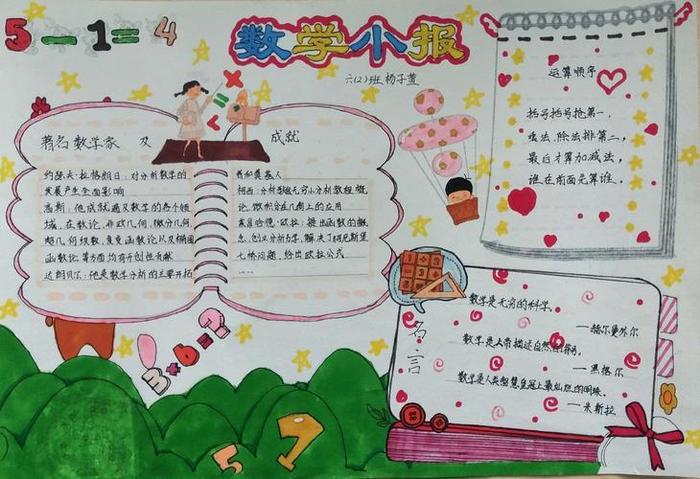 5-1=4
数学小报
六(2)班 杨子萱
著名数学家 及
成就
约瑟夫·拉格朗日：对分析数学的
发展产生全面影响
高斯：他成就遍及数学的各个领
域，在数论、非欧几何、微分几何、
超几何级数、复变函数论以及椭圆
函数论等方面均有开创性贡献
达朗贝尔：他是数学分析的主要开拓
者和奠基人
柯西：分析基础无穷小分析教程概
论，微积分在几何上的应用
莱昂哈德·欧拉：提出函数的概
念，创立分析力学，解决了柯尼斯堡
七桥问题，给出欧拉公式
......
运算顺序
括号括号抢第一，
乘法、除法排第二，
最后才算加减法，
谁在前面先算谁。
名言
数学是无穷的科学。
——赫尔曼外尔
数学是上帝描述自然的符号。
——黑格尔
数学是人类智慧皇冠上最灿烂的明珠。
——米斯拉
m+6=?
5
7